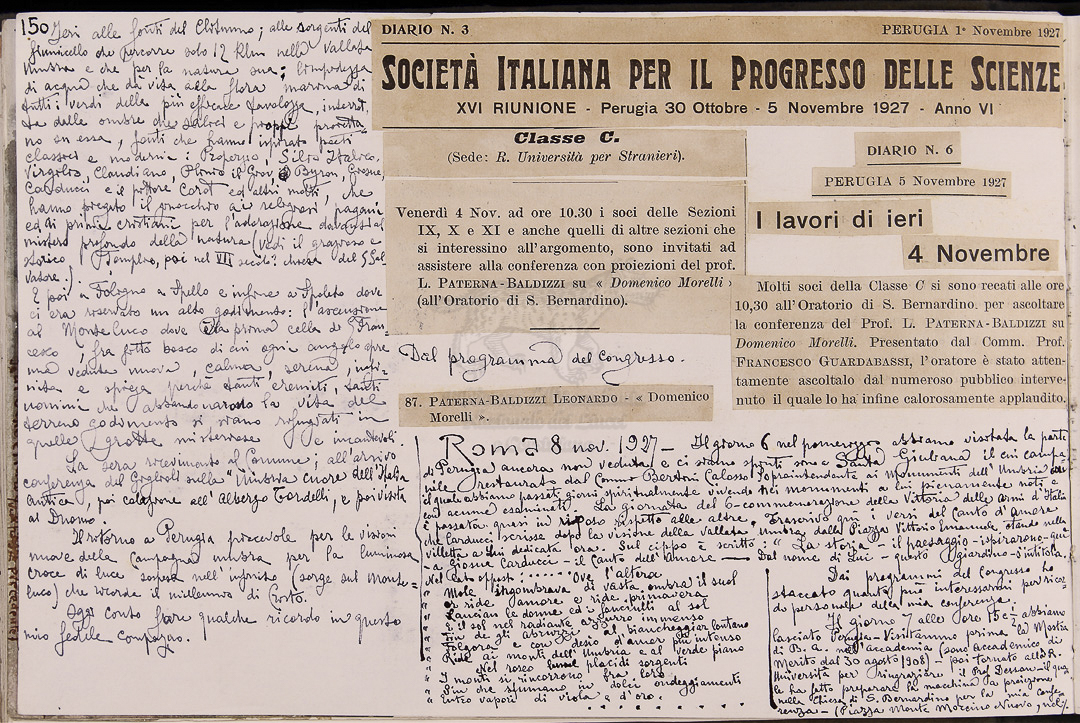 150
Ieri alle fonti del Clitumno; alle sorgenti del
fiumicello che percorre solo 12 Klm nella Vallata
Umbra e che per la natura sua; limpidezza
di acqua che dà vita alla flora marina di
tutti i verdi della più efficace tavolozza, inverdi
ta dalle ombre dei salici e pioppi proietta
no su essa, fonti che hanno ispirato poeti
classici e moderni: Properzio, Silio Italico,
Virgilio, Claudiano, Plinio il Giov Byron,
Carducci e il pittore Corot ed altri molti, che
hanno piegato il ginocchio ai religiosi pagani
ed ai primi cristiani per l'adorazione davanti al
mistero profondo della natura (vedi il grazioso e
storico Tempio, poi nel VII secolo chiesa del S Sal-
vatore.)
E poi a Foligno a Spello e infine a Spoleto dove
ci era riservato un alto godimento: l'ascensione
al Monteluco dove la prima cella di S Fran
cesco, fra fitto bosco di cui ogni angolo apre
una veduta nuova, calma, serena, infi-
nita e spiega perchè tanti eremiti, tanti
uomini che abbandonarono la vita del
terreno godimento si siano rifugiati in
quelle grotte misteriose e incantevoli.
La sera ricevimento al Comune; all'arrivo
conferenza del sulla "Umbria cuore dell'Italia
antica, poi colazione all'Albergo Tordelli, e poi visita
al Duomo.
Il ritorno a Perugia piacevole per le visioni
nuove della campagna umbra per la luminosa
croce di luce sospesa nell'infinito (sorge sul Monte=
luco) che ricorda il millennio di Cristo.
Oggi conto fare qualche ricordo in questo
mio fedele compagno.
DIARIO N. 3 PERUGIA 1° Novembre 1927
SOCIETÀ ITALIANA PER IL PROGRESSO DELLE SCIENZE
XVI RIUNIONE - Perugia 30 Ottobre - 5 Novembre 1927 - Anno VI
Classe C.
(Sede: R. Università per Stranieri).
Venerdì 4 Nov. ad ore 10.30 i soci delle Sezioni
IX, X e XI e anche quelli di altre sezioni che
si interessino all'argomento, sono invitati ad
assistere alla conferenza con proiezioni del prof.
L. PATERNA-BALDIZZI su « Domenico Morelli »
(all'Oratorio di S. Bernardino).
Dal programma del Congresso.
87. PATERNA-BALDIZZI LEONARDO - « Domenico
Morelli ».
DIARIO N. 6
PERUGIA 5 Novembre 1927
I lavori di ieri
4 Novembre
Molti soci della Classe C si sono recati alle ore
10,30 all'Oratorio di S. Bernardino per ascoltare
la conferenza del Prof. L. PATERNA-BALDIZZI su
Domenico Morelli. Presentato dal Comm. Prof.
FRANCESCO GUARDABASSI, l'oratore è stato atten-
tamente ascoltato dal numeroso pubblico interve-
nuto il quale lo ha infine calorosamente applaudito.
Roma 8 nov. 1927 - Il giorno 6 nel pomeriggio abbiamo visitata la parte
di Perugia ancora non veduta e ci siamo spinti sino a Santa Giuliana il cui campa
nile restaurato dal Comm Bertini Calosso Sopraintendente ai Monumenti dell'Umbria con
il quale abbiamo passati giorni spiritualmente vivendo nei monumenti a lui pienamente noti e
con acume esaminati. La giornata del 6-commemorazione della Vittoria delle Armi d'Italia
passata quasi in riposo rispetto alle altre. Trascrivo qui i versi del Canto d'amore
che Carducci scrisse dopo la visione della Vallata umbra dalla Piazza Vittorio Emanuele, stando nella
villetta a Lui dedicata ora. Sul cippo è scritto "La storia - il paesaggio - ispirarono - qui
a Giosue Carducci - il Canto dell'Amore - Dal nome di Lui - questo giardino - s'intitola.
Nel lato opposto: ..... Ove l'altera
Mole ingombrava di vasta ombra il suol
or ride amore e ride primavera
Ciancian le donne ed i fanciulli al sol
E il sol nel radiante azzurro immenso
Fin de gli Abruzzi al biancheggiar lontano
Folgora e con desio d'amor più intenso
Ride ai monti dell'Umbria e al verde piano
Nel roseo lume placidi sorgenti
I monti si rincorrono fra loro
Sin che sfumano in dolci ondeggiamenti
entro vapori di viola e d'oro.
Dai programmi del Congresso ho
staccato quanto può interessarmi per ricor
do personale della mia conferenza.
Il giorno 7 alle ore 15 e ½ abbiamo
lasciato Perugia - Visitammo prima la Mostra
di B. A. nell'accademia (sono Accademico di
Merito dal 30 agosto 1908) - poi tornato alla R.
Università per ringraziare il Prof il qua
le ha fatto preparare la macchina a proiezione
nella Chiesa di S. Bernardino per la mia confe
renza - (Piazza Monte Morcino Nuovo